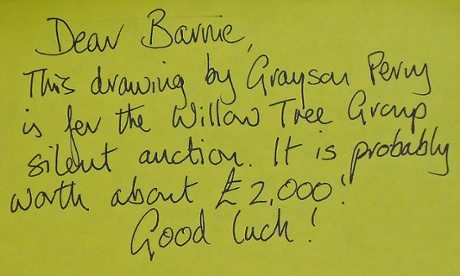 Dear Barrie,
This drawing by Grayson Perry
is for the Willow Tree Group
silent auction. It is probably
worth about £2,000!
Good luck!